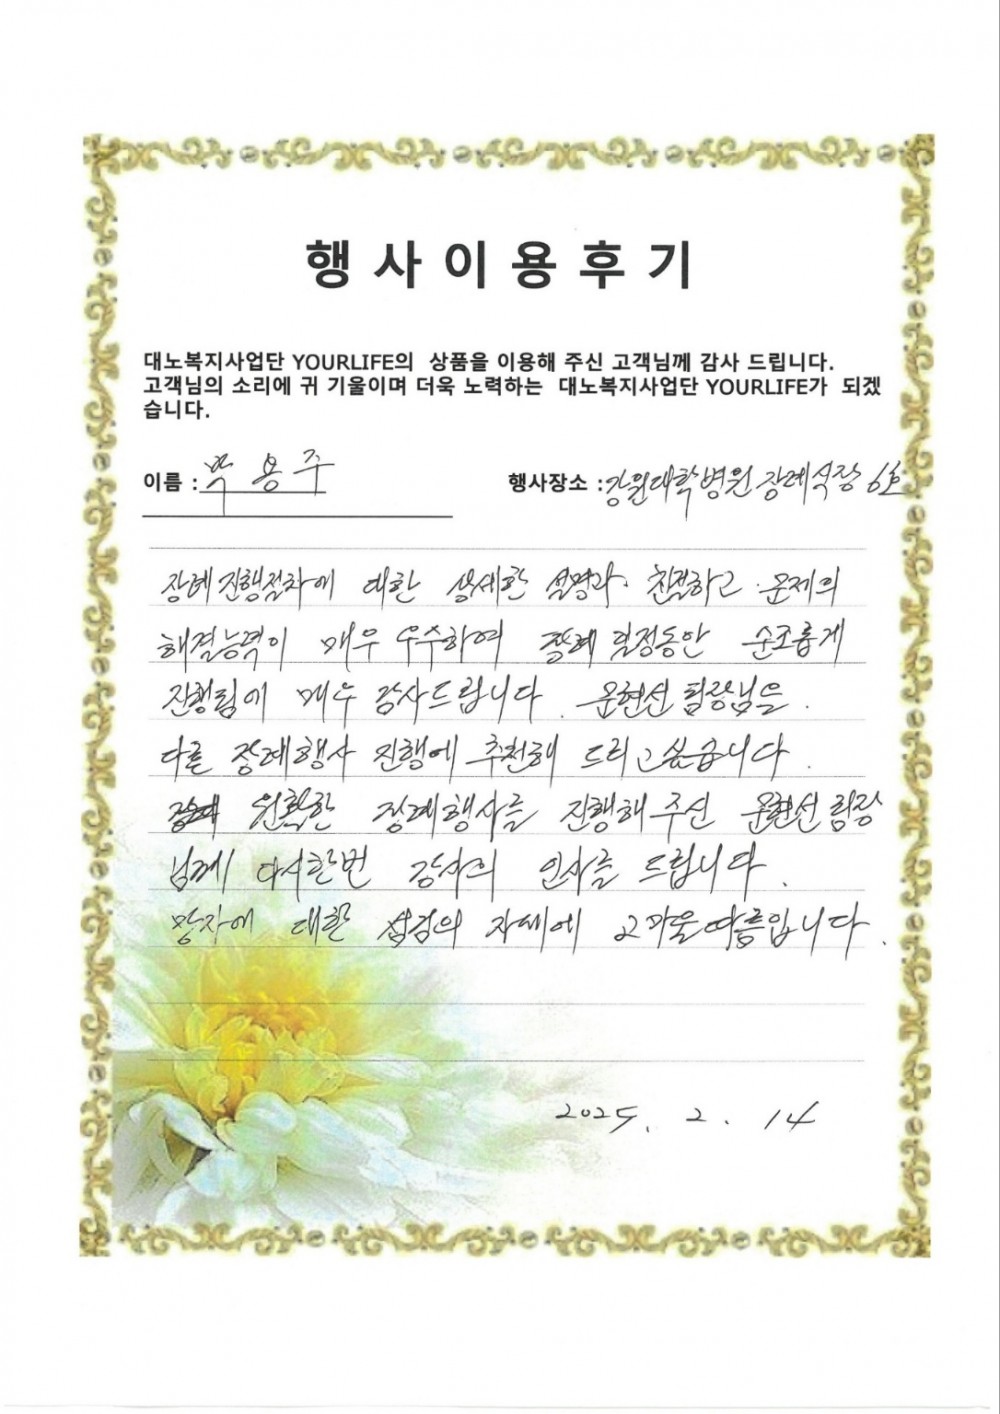 행사이용후기
대노복지사업단 YOURLIFE의 상품을 이용해 주신 고객님께 감사 드립니다.
고객님의 소리에 귀 기울이며 더욱 노력하는 대노복지사업단 YOURLIFE가 되겠
습니다.
이름 : 박용주
행사장소 : 강원대학병원 장례식장 6호
장례 진행절차에 대한 상세한 설명과 친절하고 문제의
해결능력이 매우 우수하여 장례 일정동안 순조롭게
진행됨에 매우 감사드립니다. 문현선 팀장님은
다른 장례행사 진행에 추천해 드리고 싶습니다.
원활한 장례행사를 진행해 주신 문현선 팀장
님께 다시한번 감사의 인사를 드립니다.
망자에 대한 섬김의 자세에 고마울따름입니다.
2025. 2. 14